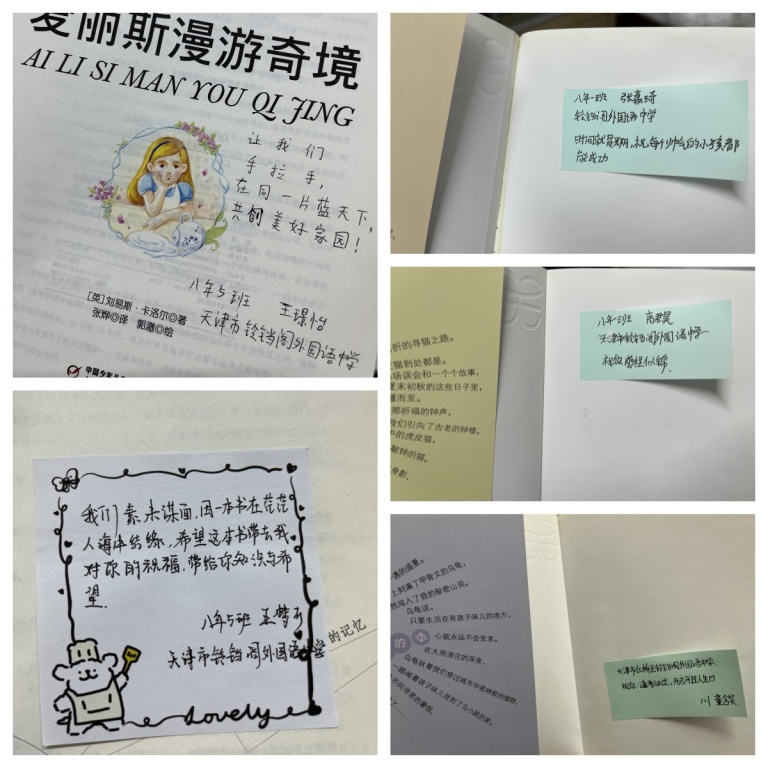 爱丽斯漫游奇境
AI LI SI MAN YOU QI JING
让我们
手拉手，
在同一片蓝天下，
共创美好家园！
八年5班 王璟怡
天津市铃铛阁外国语中学
[英]刘易斯·卡洛尔◎著
张烨◎译 郭潋◎绘
中国少年儿
八年一班 张嘉琦
铃铛阁外国语中学
能成功
折的寻猫之路。
猫到处都是。
场误会和一个个故事，
夏末初秋的这些日子里，
而至。
那祈福的钟声，
我们引向了古老的钟楼。
中的虎皮猫，
敲钟的猫。
身影，
八年一班
天津市铃铛阁外国语中学
祝你前程似锦.
我们素未谋面，因一本书在茫茫
人海中结缘，希望这本书带去我
对你的祝福，带给你知识与希
望.
八年5班 王梦
天津市铃铛阁外国语中学
的记忆
Lovely
遇的盛夏。
上刻满了甲骨文的乌龟，
然闯入了我的秘密山洞。
乌龟说，
只要生活在有孩子味儿的地方，
心就永远不会变老。
在大雨滂沱的深夜，
乌龟驮着我们穿过城市中密林般的楼群，
一路闻着孩子味儿找到了马小跳的家。
不同寻常的暑假，
了……
的 话
天津市红桥区铃铛阁外国语中学